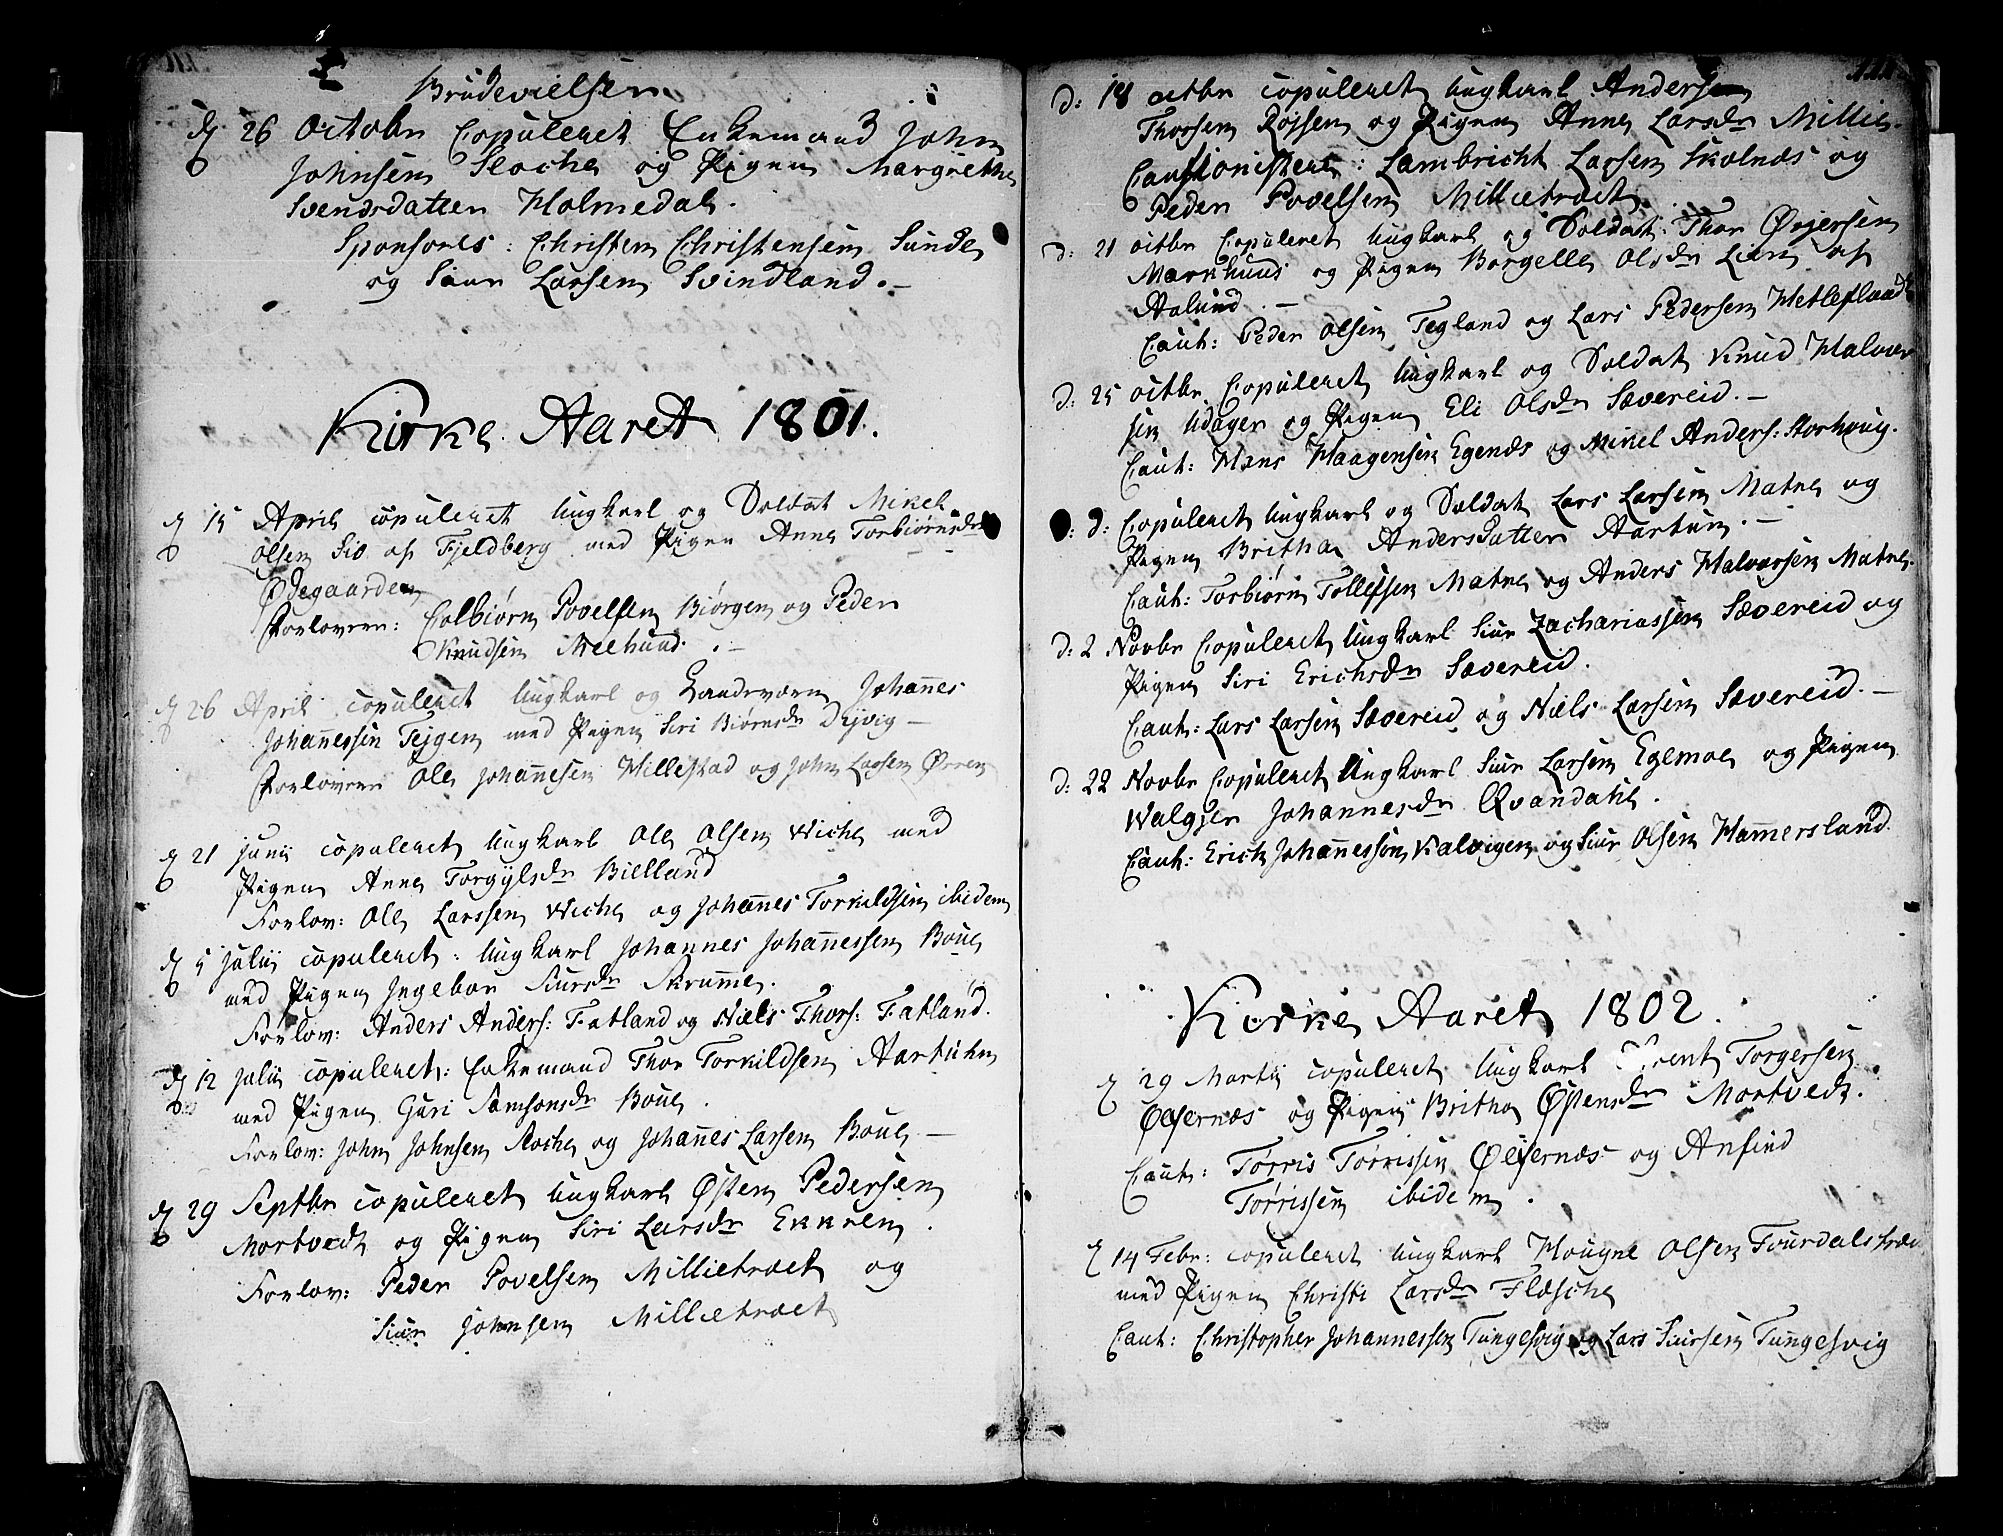 Brudevielsen
d 26 Octobr Copuleret Enkemand John
Johnsen Stoche og Pigen Margrethe
Svendsdatter Holmedal.
Sponsores: Christen Christensen Sunde
og Siur Larsen Svindland.–
Kirke Aaret 1801.
d 15 April copuleret Ungkarl og Soldat Mikel
Olsen Sio af Fjeldberg med Pigen Anna Torbiørnsdr
Ødegaarden
Forlovere: Colbiørn Povelsen Biørgen og Peder
Knudsen Mehuus.–
d 26 April copuleret Ungkarl og Landeværn Johannes
Johannessen Tejgen med Pigen Siri Biørnsdr Dyvig –
Forlovere Ole Johannesen Millestad og John Larsen Ørren
d 21 Junii copuleret Ungkarl Ole Olsen Wiche med
Pigen Anna Torgylsdr Bielland
Forlov: Ole Larssen Wiche og Johannes Torkildsen ibidem
d 5 Julii copuleret: Ungkarl Johannes Johannessen Boue
med Pigen Ingebor Siursdr Skrumme.
Forlov: Anders Anders: Fatland og Niels Thors: Fatland.
d 12 Julii copuleret: Enkemand Thor Torkildsen Aartuhn
med Pigen Guri Samsonsdr Boue.
Forlov: John Johnsen Stoche og Johannes Larsen Boue –
d 29 Septbr copuleret Ungkarl Østen Pedersen
Mortvedt og Pigen Siri Larsdr Ekkren.
Forlov: Peder Povelsen Millietræet og
Siur Johnsen Millietræet
d: 18 octbr copuleret Ungkarl Andersen
Thorsen Røssen og Pigen Anna Larsdr Millie.
Cautionistere: Lambricht Larsen Skolnæs og
Peder Povelsen Millietræet.
d: 21 octbr Copuleret Ungkarl og Soldat Thor Øvjersen
Markhuus og Pigen Borgelle Olsdr Lien af
Aalund.–
Caut: Peder Olsen Tegland og Lars Pedersen Hetleflaadt
d: 25 octbr Copuleret Ungkarl og Soldat Knud Halvor
sen Udager og Pigen Eli Olsdr Sævereid.–
Caut: Hans Haagensen Egenæs og Mikel Anders: Storhoug.
d: d: Copuleret Ungkarl og Soldat Lars Larsen Matre og
Pigen Britha Andersdatter Aartun.–
Caut: Torbiørn Tollefsen Matre og Anders Halvorsen Matre.
d: 2 Novbr Copuleret Ungkarl Siur Zachariassen Sævereid og
Pigen Siri Erichsdr Sævereid.
Caut: Lars Larsen Sævereid og Niels Larsen Sævereid.–
d: 22 Novbr Copuleret Ungkarl Siur Larsen Egemoe og Pigen
Walgjer Johannesdr Qvandahl.
Caut: Erich Johannesson Kalvigen og Siur Olsen Hammersland.
Kirke Aaret 1802.
d 29 Martii copuleret Ungkarl Torgersen
Ølfernæs og Pigen Britha Østensdr Mortvedt.
Caut: Tørris Tørrissen Ølfernæs og Anfind
Tørrissen ibidem.
d 14 Febr: copuleret Ungkarl Hougne Olsen Fourdalstræ
med Pigen Christi Larsdr Flæsche
Caut: Christopher Johannessen Tungesvig og Lars Siursen Tungesvig